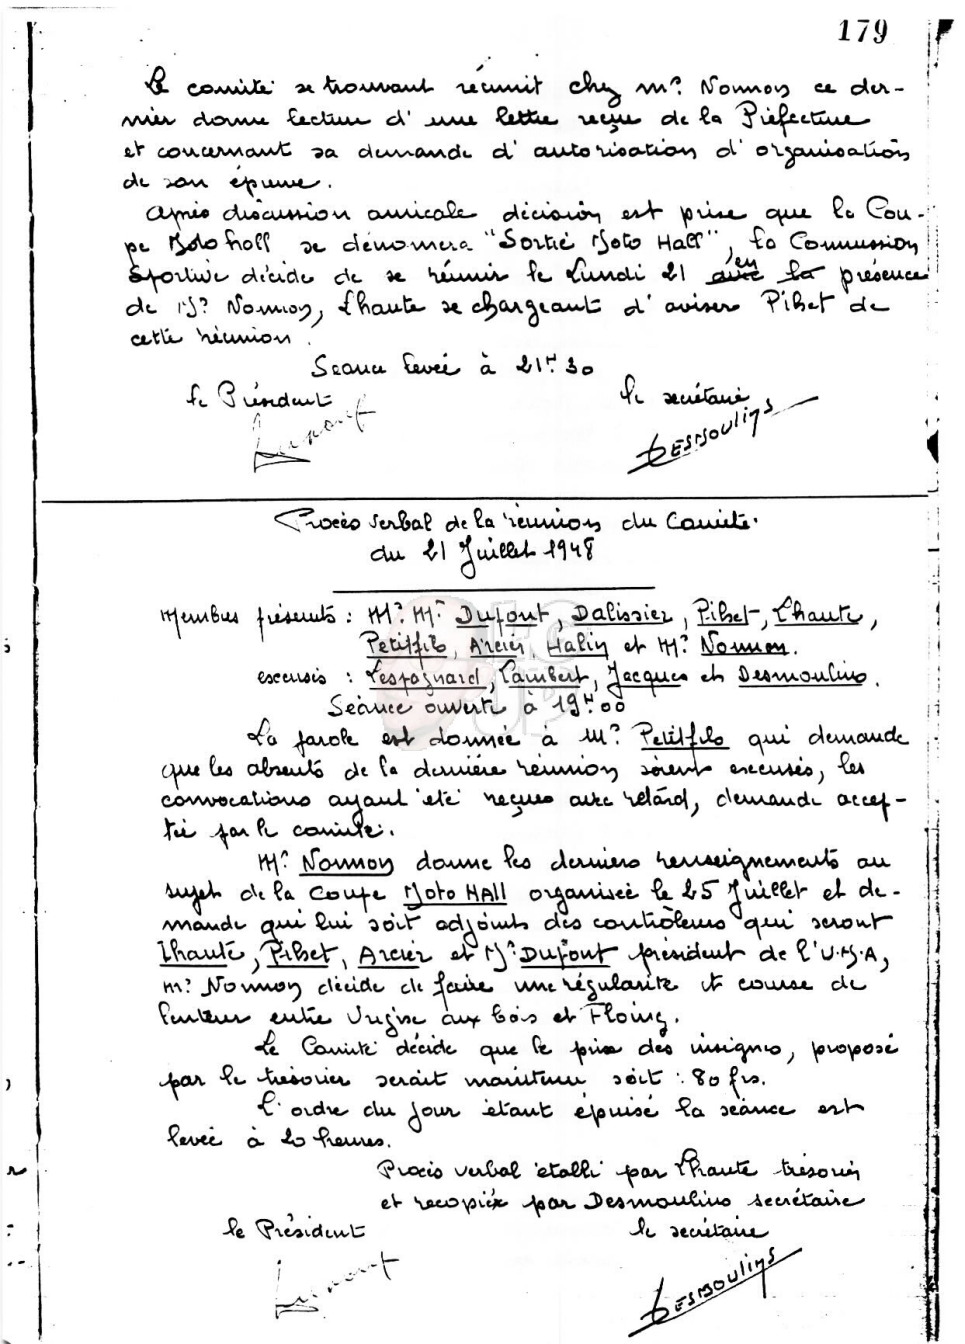 179
Le comité se trouvant réunit chez Mr. Nonnon ce der-
nier donne lecture d'une lettre reçue de la Préfecture
et concernant sa demande d'autorisation d'organisation
de son épreuve.
Après discussion amicale décision est prise que la Cou-
pe Moto Hall se dénomera "Sortie Moto Hall", la Commission
Sportive décide de se réunir le Lundi 21 avec la en présence
de Mr. Nonnon, Lhaute se chargeant d'aviser Pilset de
cette réunion.
Séance levée à 21H.30
le Président
le secrétaire
DESMOULINS
Procès verbal de la réunion du Comité.
du 21 Juillet 1948
Membres présents : Mr. Mr. Dufont, Dalissier, Pilset, Lhaute,
Petitfils, Arcier, Halin et Mr. Nonnon.
excusés : Lespagnard, Lambert, Jacques et Desmoulins.
Séance ouverte à 19H.00
La parole est donnée à Mr. Petitfils qui demande
que les absents de la dernière réunion soient excusés, les
convocations ayant été reçues avec retard, demande accep-
tée par le comité.
Mr. Nonnon donne les derniers renseignements au
sujet de la Coupe Moto HAll organisée le 25 Juillet et de-
mande qui lui soit adjoints des contrôleurs qui seront
Lhaute, Pilset, Arcier et Mr. Dufont président de l'U.M.A,
Mr. Nonnon décide de faire une régularité et course de
lenteur entre Vrigne aux bois et Floing.
Le Comité décide que le prix des insignes, proposé
par le trésorier serait maintenu soit : 80 frs.
L'ordre du jour étant épuisé la séance est
levée à 20 heures.
Procès verbal établi par Lhaute trésorier
et recopiée par Desmoulins secrétaire
le Président
le secrétaire
DESMOULINS